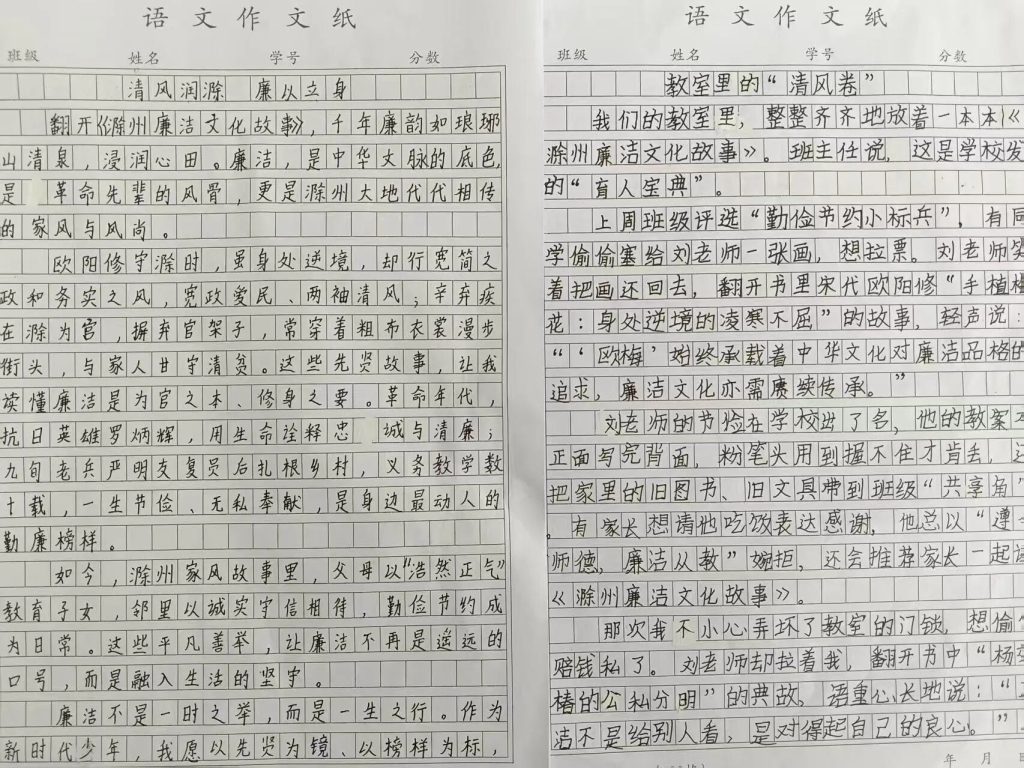 语文作文纸
班级 姓名 学号 分数
清风润滁 廉以立身
翻开《滁州廉洁文化故事》，千年廉韵如琅琊
山清泉，浸润心田。廉洁，是中华文脉的底色，
是 革命先辈的风骨，更是滁州大地代代相传
的家风与风尚。
欧阳修守滁时，虽身处逆境，却行宽简之
政和务实之风，宽政爱民、两袖清风；辛弃疾
在滁为官，摒弃官架子，常穿着粗布衣裳漫步
街头，与家人甘守清贫。这些先贤故事，让我
读懂廉洁是为官之本、修身之要。革命年代，
抗日英雄罗炳辉，用生命诠释忠 诚与清廉；
九旬老兵严明友复员后扎根乡村，义务教学数
十载，一生节俭、无私奉献，是身边最动人的
勤廉榜样。
如今，滁州家风故事里，父母以“浩然正气”
教育子女，邻里以诚实守信相待，勤俭节约成
为日常。这些平凡善举，让廉洁不再是遥远的
口号，而是融入生活的坚守。
廉洁不是一时之举，而是一生之行。作为
新时代少年，我愿以先贤为镜、以榜样为标，
语文作文纸
班级 姓名 学号 分数
教室里的“清风卷”
我们的教室里，整整齐齐地放着一本本《
滁州廉洁文化故事》。班主任说，这是学校发
的“育人宝典”。
上周班级评选“勤俭节约小标兵”，有同
学偷偷塞给刘老师一张画，想拉票。刘老师笑
着把画还回去，翻开书里宋代欧阳修“手植梅
花：身处逆境的凌寒不屈”的故事，轻声说：
“‘欧梅’始终承载着中华文化对廉洁品格的
追求，廉洁文化亦需赓续传承。”
刘老师的节俭在学校出了名，他的教案
正面写完背面，粉笔头用到握不住才肯丢，还
把家里的旧图书、旧文具带到班级“共享角”
。有家长想请他吃饭表达感谢，他总以“遵
师德，廉洁从教”婉拒，还会推荐家长一起读
《滁州廉洁文化故事》。
那次我不小心弄坏了教室的门锁，想偷
赔钱私了。刘老师却拉着我，翻开书中“杨
椿的公私分明”的典故，语重心长地说：“
洁不是给别人看，是对得起自己的良心。”
年 月